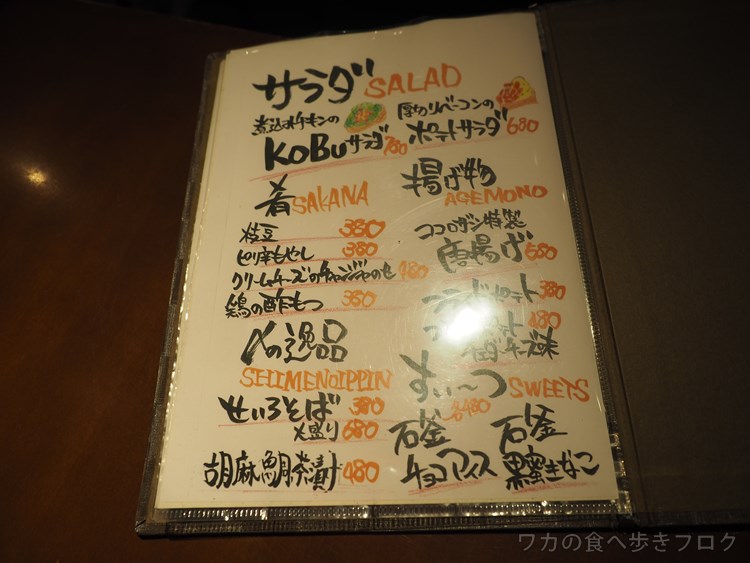 サラダ SALAD
煮込みチキンの
KOBUサラダ 780
厚切りベーコンの
ポテトサラダ 680
肴 SAKANA
枝豆 380
ピリ辛もやし 380
クリームチーズのチャンジャのせ 480
鶏の酢もつ 380
〆の逸品
SHIMENOIPPIN
せいろそば 380
大盛り 680
胡麻鯛茶漬け 480
揚げ物
AGEMONO
ココロザシ特製
唐揚げ 680
フライドポテト 380
480
チーズ味
すい〜つ SWEETS
各480
石釜
チョコアイス
石釜
黒蜜きなこ
ワカの食べ歩きブログ